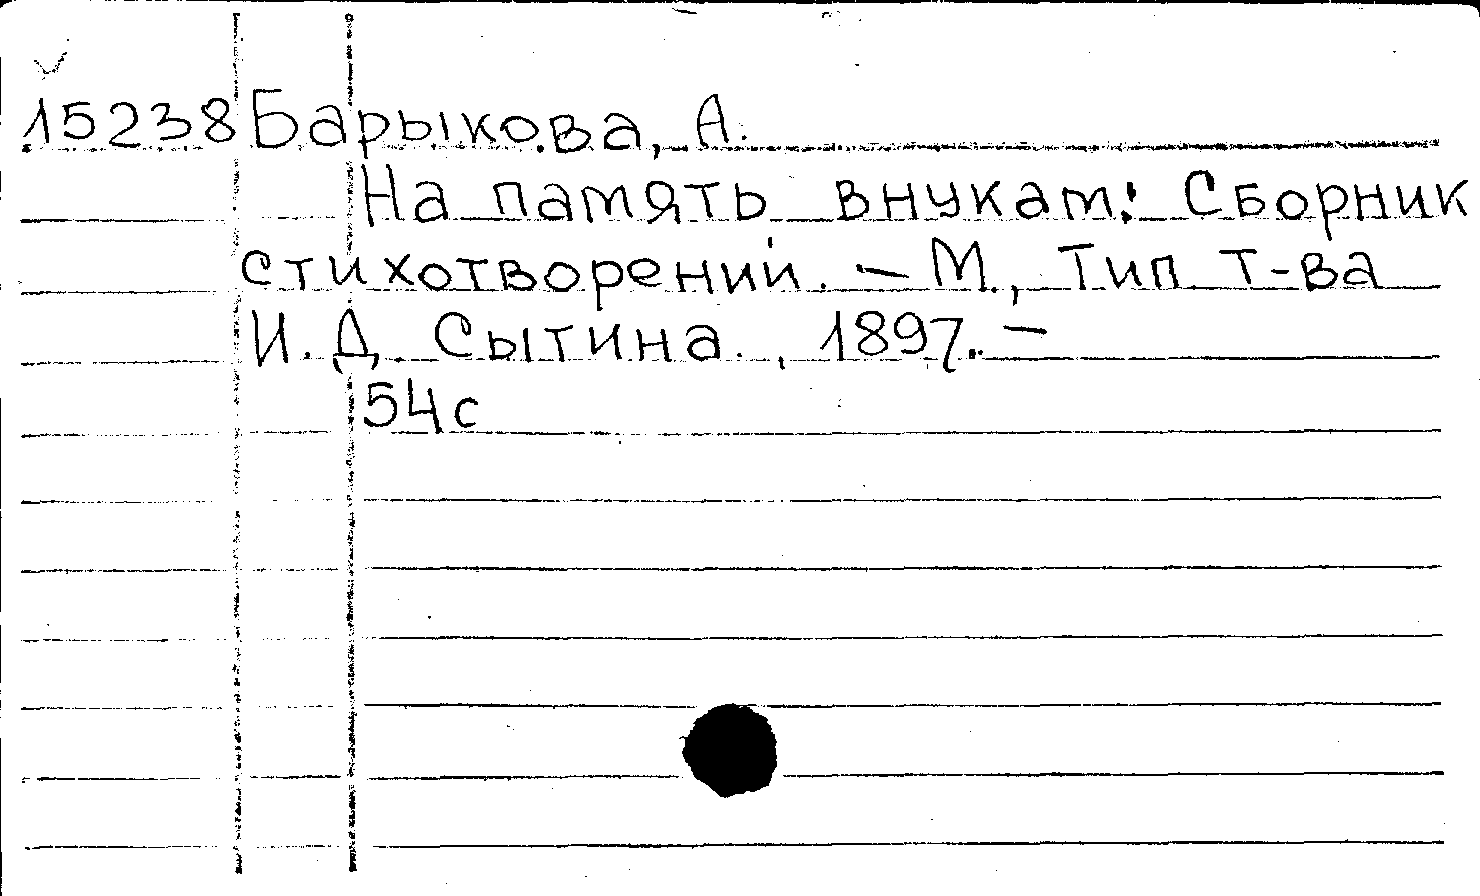 15238 Барыкова, А.
На память внукам: Сборник
стихотворений. — М., Тип. т-ва
И. Д. Сытина., 1897. —
54 с